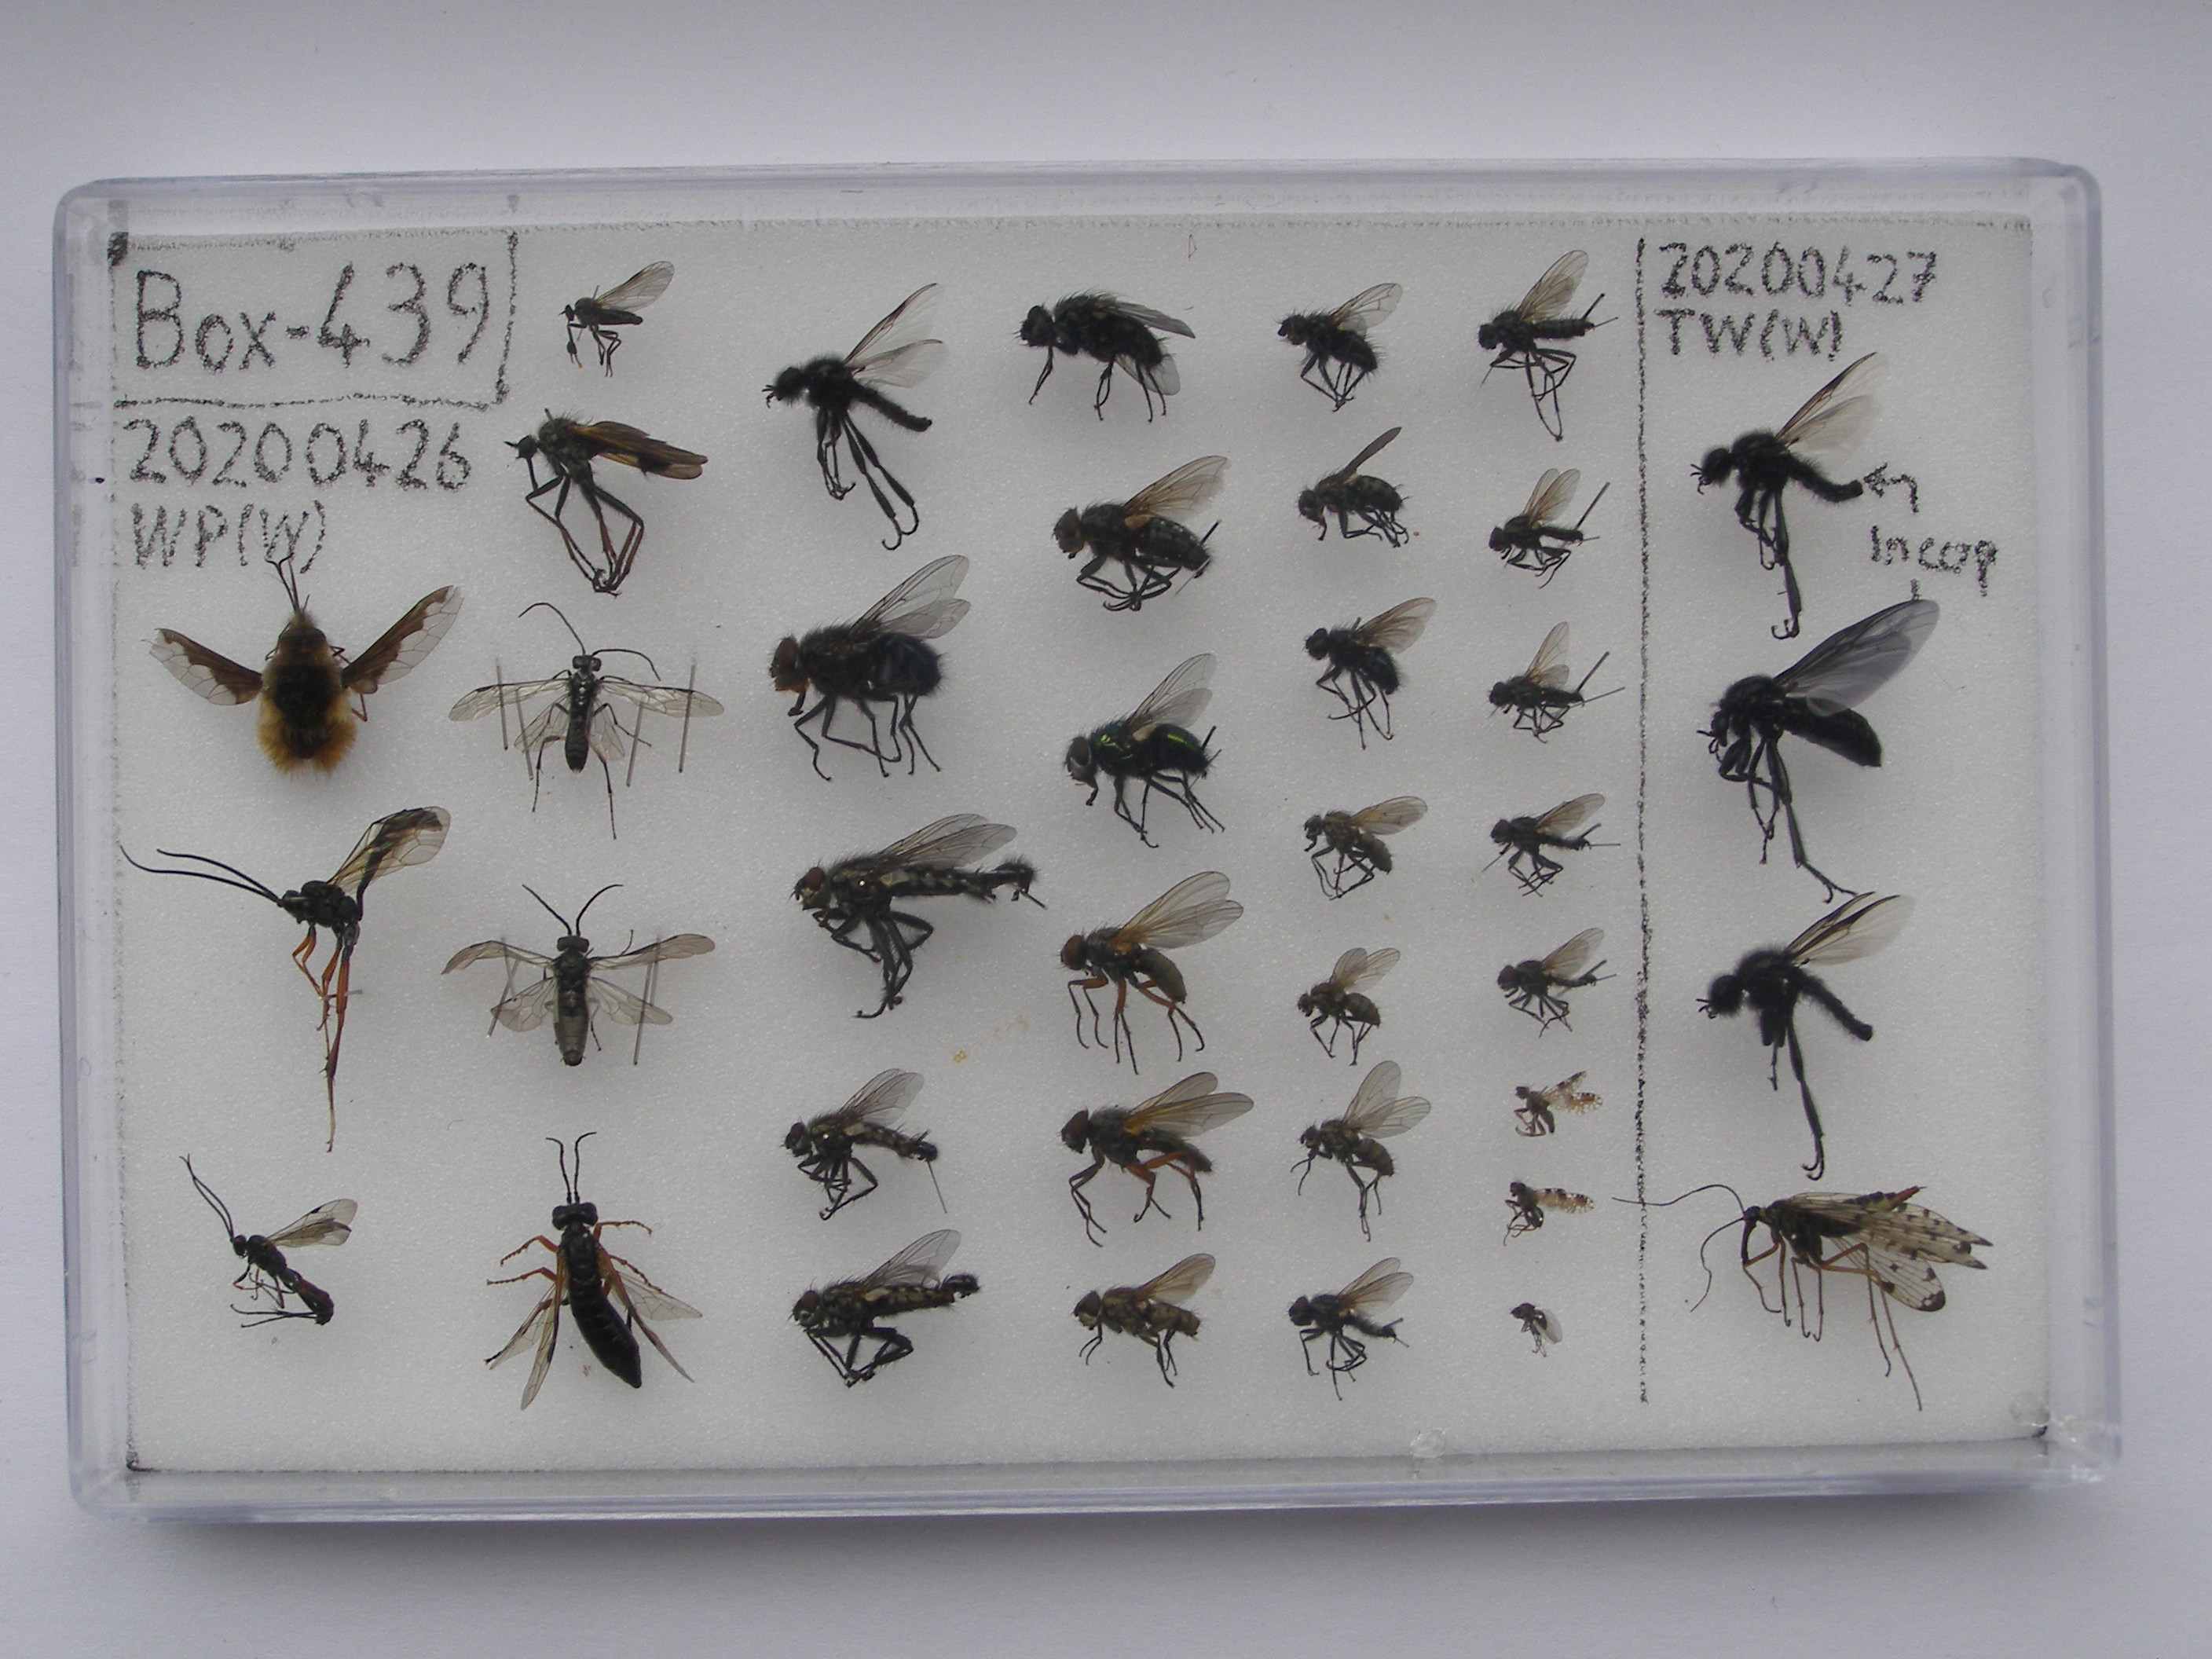 Box-439
20200426
WP(W)
20200427
TW(W)
In cop